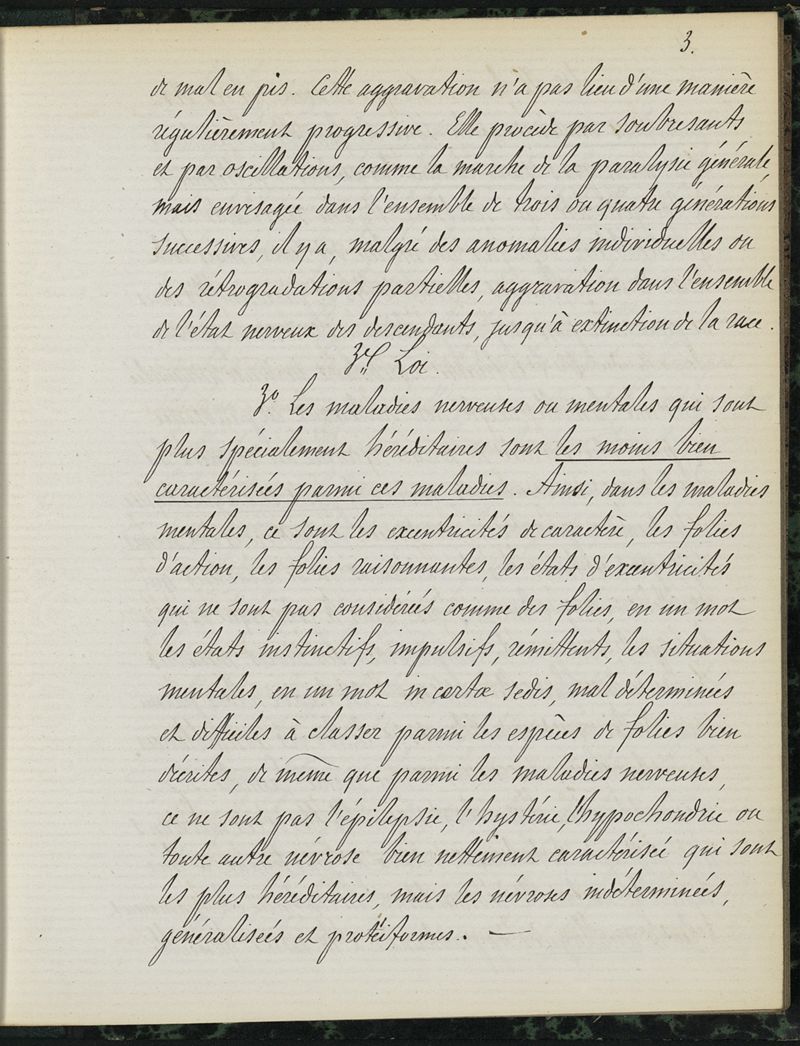 3.
de mal en pis. Cette aggravation n'a pas lieu d'une manière
régulièrement progressive. Elle procède par soubresauts
et par oscillations, comme la marche de la paralysie générale,
mais envisagée dans l'ensemble de trois ou quatre générations
successives, il y a, malgré des anomalies individuelles ou
des rétrogradations partielles, aggravation dans l'ensemble
de l'état nerveux des descendants, jusqu'à extinction de la race.
3e Loi.
3º. Les maladies nerveuses ou mentales qui sont
plus spécialement héréditaires sont les moins bien
caractérisées parmi ces maladies. Ainsi, dans les maladies
mentales, ce sont les excentricités de caractère, les folies
d'action, les folies raisonnantes, les états d'excentricités
qui ne sont pas considérées comme des folies, en un mot
les états instinctifs, impulsifs, rémittents, les situations
mentales, en un mot incertæ sedis, mal déterminées
et difficiles à classer parmi les espèces de folies bien
décrites, de même que parmi les maladies nerveuses,
ce ne sont pas l'épilepsie, l'hystérie, l'hypochondrie ou
toute autre névrose bien nettement caractérisée qui sont
les plus héréditaires, mais les névroses indéterminées,
généralisées et protéiformes. —